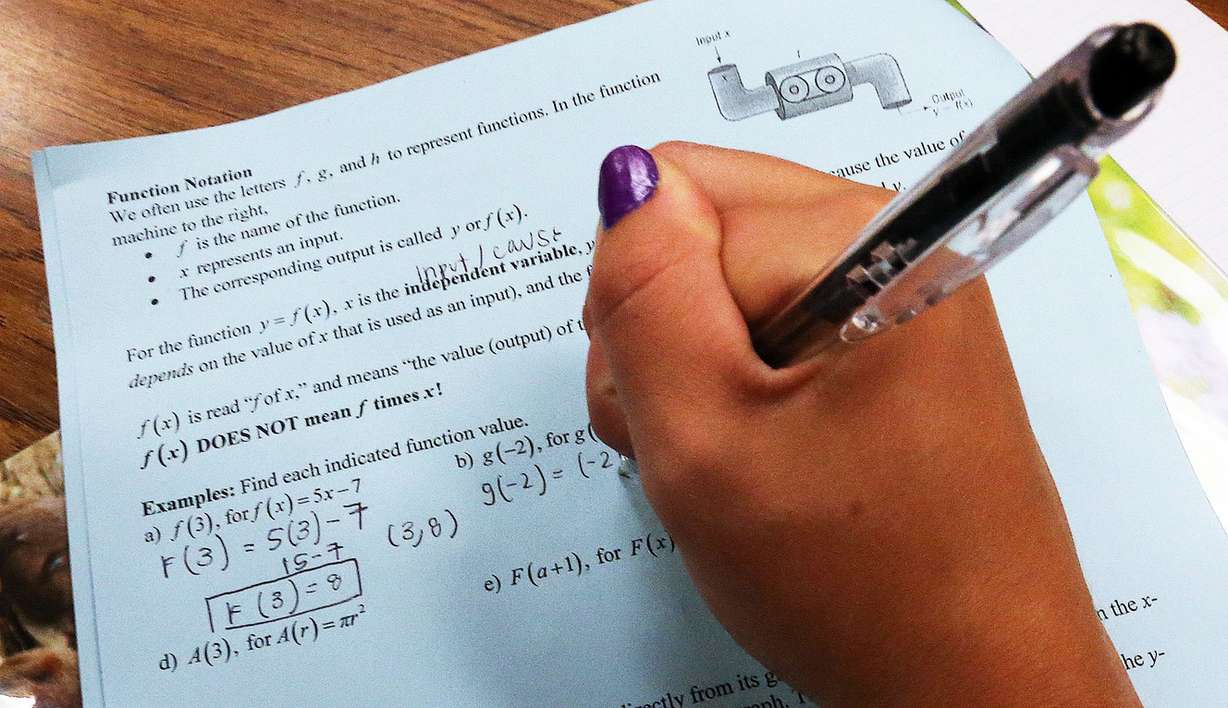 Input x
f
Output
y = f(x)
Function Notation
We often use the letters f, g, and h to represent functions. In the function
machine to the right,
• f is the name of the function.
• x represents an input.
• The corresponding output is called y or f(x).
cause the value of
y.
Input / cause
For the function y = f(x), x is the independent variable,
depends on the value of x that is used as an input), and the
f(x) is read “f of x,” and means “the value (output) of
f(x) DOES NOT mean f times x!
Examples: Find each indicated function value.
a) f(3), for f(x)=5x−7
b) g(−2), for g(
F(3) = 5(3)−7
g(-2) = (-2
15-7
(3,8)
F(3) = 8
d) A(3), for A(r)=πr²
e) F(a+1), for F(x)
the x-
directly from its
y-